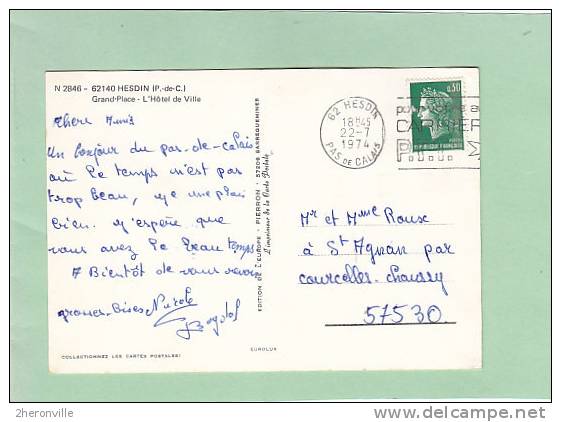 N 2846 - 62140 HESDIN (P.-de-C.)
Grand-Place - L'Hôtel de Ville
Chers Amis
Un bonjour du pas-de-Calais
où le temps n'est pas
trop beau, je me plais
bien. j'espère que
vous avez le beau temps
A Bientôt de vous revoir
grosses Bises Nicole
EDITION DE L'EUROPE - PIERRON - 57206 SARREGUEMINES
L'imprimeur de la Carte Postale
COLLECTIONNEZ LES CARTES POSTALES!
EUROLUX
62 HESDIN
18H45
22-7
1974
PAS DE CALAIS
0,50
REPUBLIQUE FRANÇAISE
Mr et Mme Roux
à St Agnan par
courcelles-chaussy
57530.
2heronville
www.delcampe.net